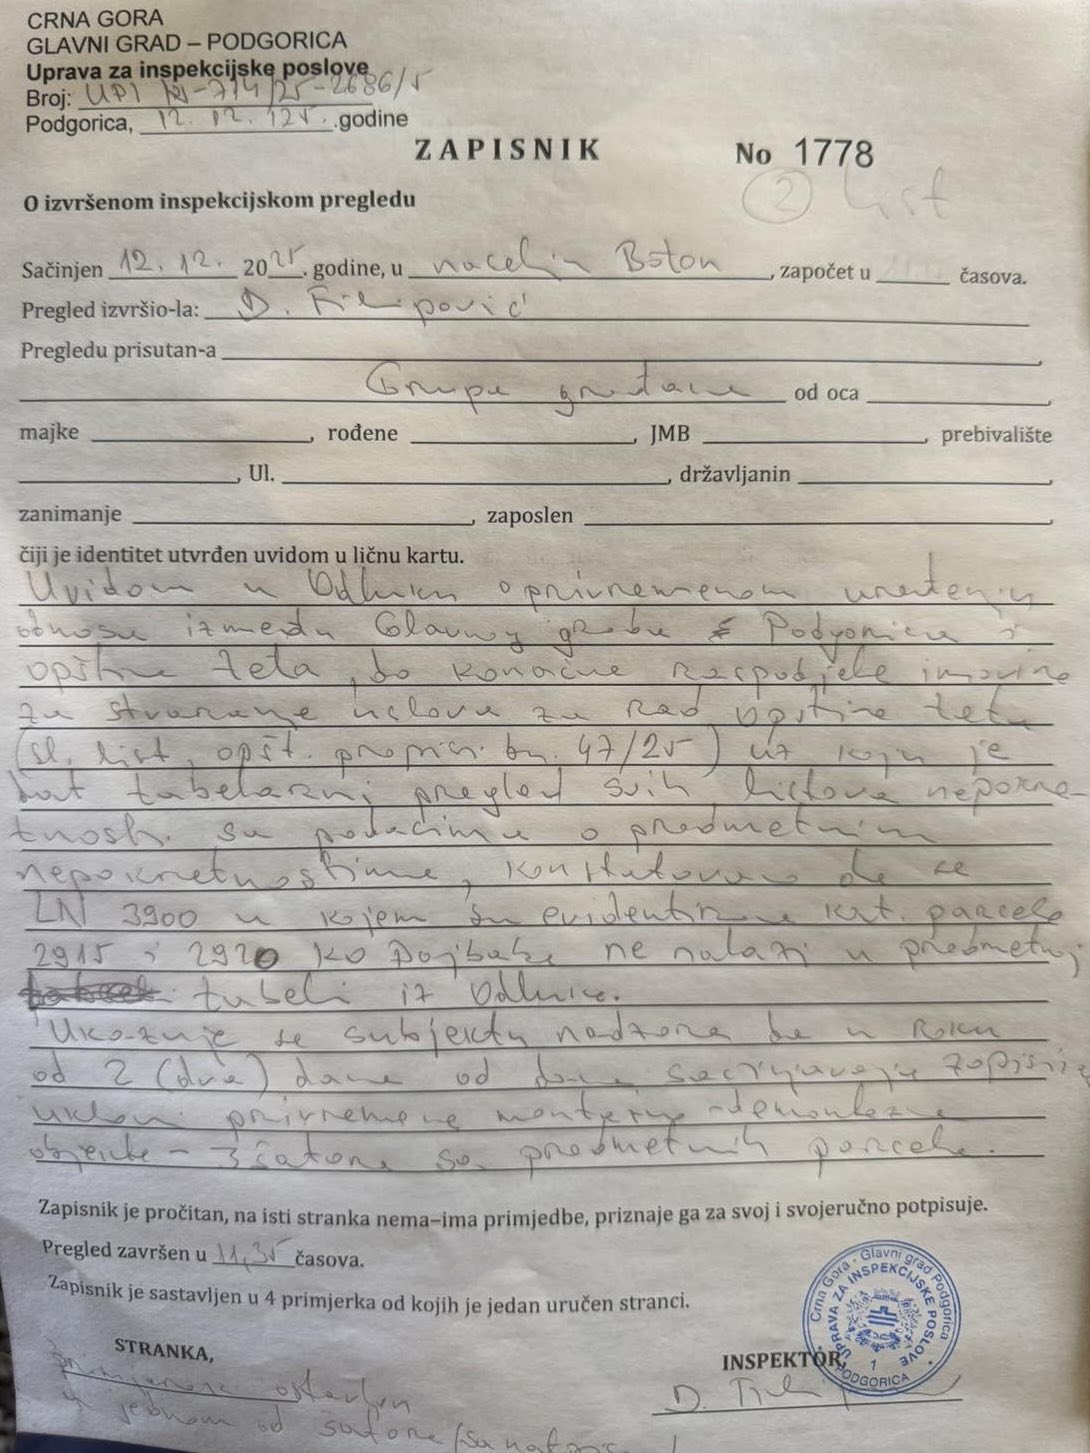 CRNA GORA
GLAVNI GRAD – PODGORICA
Uprava za inspekcijske poslove
Broj: UPI 12-714/25-2686/5
Podgorica, 12.12.125. godine
ZAPISNIK No 1778
2 list
O izvršenom inspekcijskom pregledu
Sačinjen 12.12. 2025. godine, u naselju Boton, započet u ____ časova.
Pregled izvršio-la: D. Filipović
Pregledu prisutan-a
Grupa građana od oca
majke , rođene , JMB , prebivalište
, Ul. , državljanin
zanimanje , zaposlen
čiji je identitet utvrđen uvidom u ličnu kartu.
Uvidom u Odluku o privremenom uređenju
odnosa između Glavnog grada Podgorica i
opštine Zeta, do konačne raspodjele imovine
za stvaranje uslova za rad opštine Zeta
(sl. list, opšt. propisi br. 47/25) uz koju je
dat tabelarni pregled svih listova nepokre-
tnosti sa podacima o predmetnim
nepokretnostima, konstatovano da se
LN 3900 u kojem su evidentirane kat. parcele
2915 i 2920 KO Dajbabe ne nalazi u predmetnoj
tabeli iz Odluke.
Ukazuje se subjektu nadzora da u roku
od 2 (dva) dana od dana sačinjavanja zapisnika
ukloni privremene montažno-demontažne
objekte – 3 šatora sa predmetnih parcela.
Zapisnik je pročitan, na isti stranka nema–ima primjedbe, priznaje ga za svoj i svojeručno potpisuje.
Pregled završen u 11,35 časova.
Zapisnik je sastavljen u 4 primjerka od kojih je jedan uručen stranci.
STRANKA, INSPEKTOR,
primjerak ostavljen D. Filipović
u jednom od šatora
Crna Gora - Glavni grad Podgorica
UPRAVA ZA INSPEKCIJSKE POSLOVE
1
PODGORICA